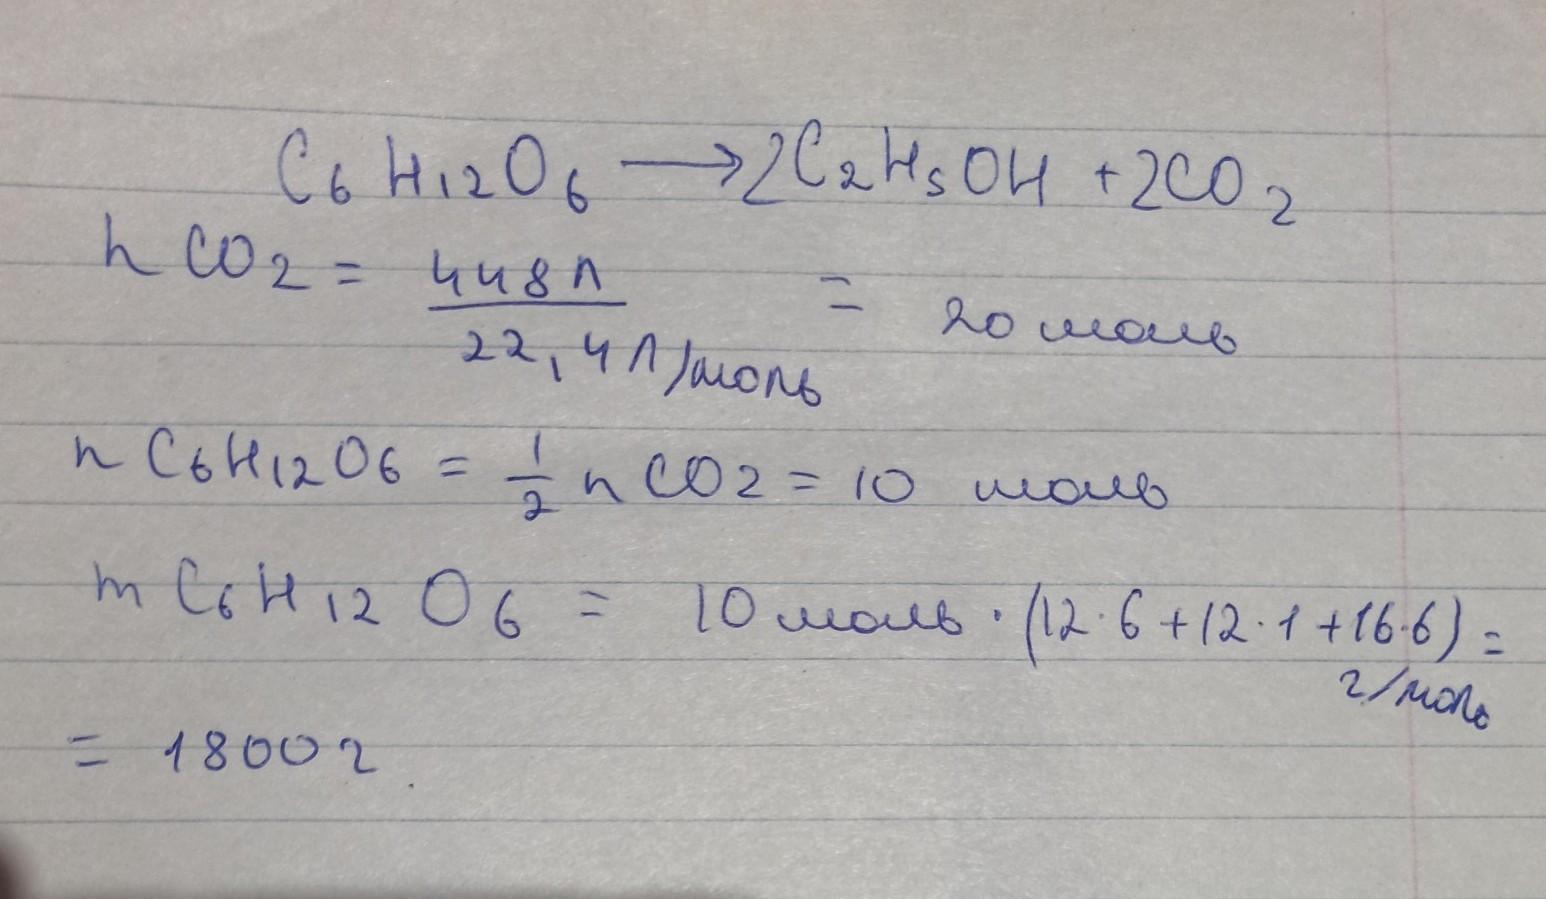 C₆H₁₂O₆ → 2C₂H₅OH + 2CO₂
n CO₂ = 448л / 22,4 л/моль = 20 моль
n C₆H₁₂O₆ = 1/2 n CO₂ = 10 моль
m C₆H₁₂O₆ = 10 моль · (12·6+12·1+16·6) г/моль =
= 1800 г